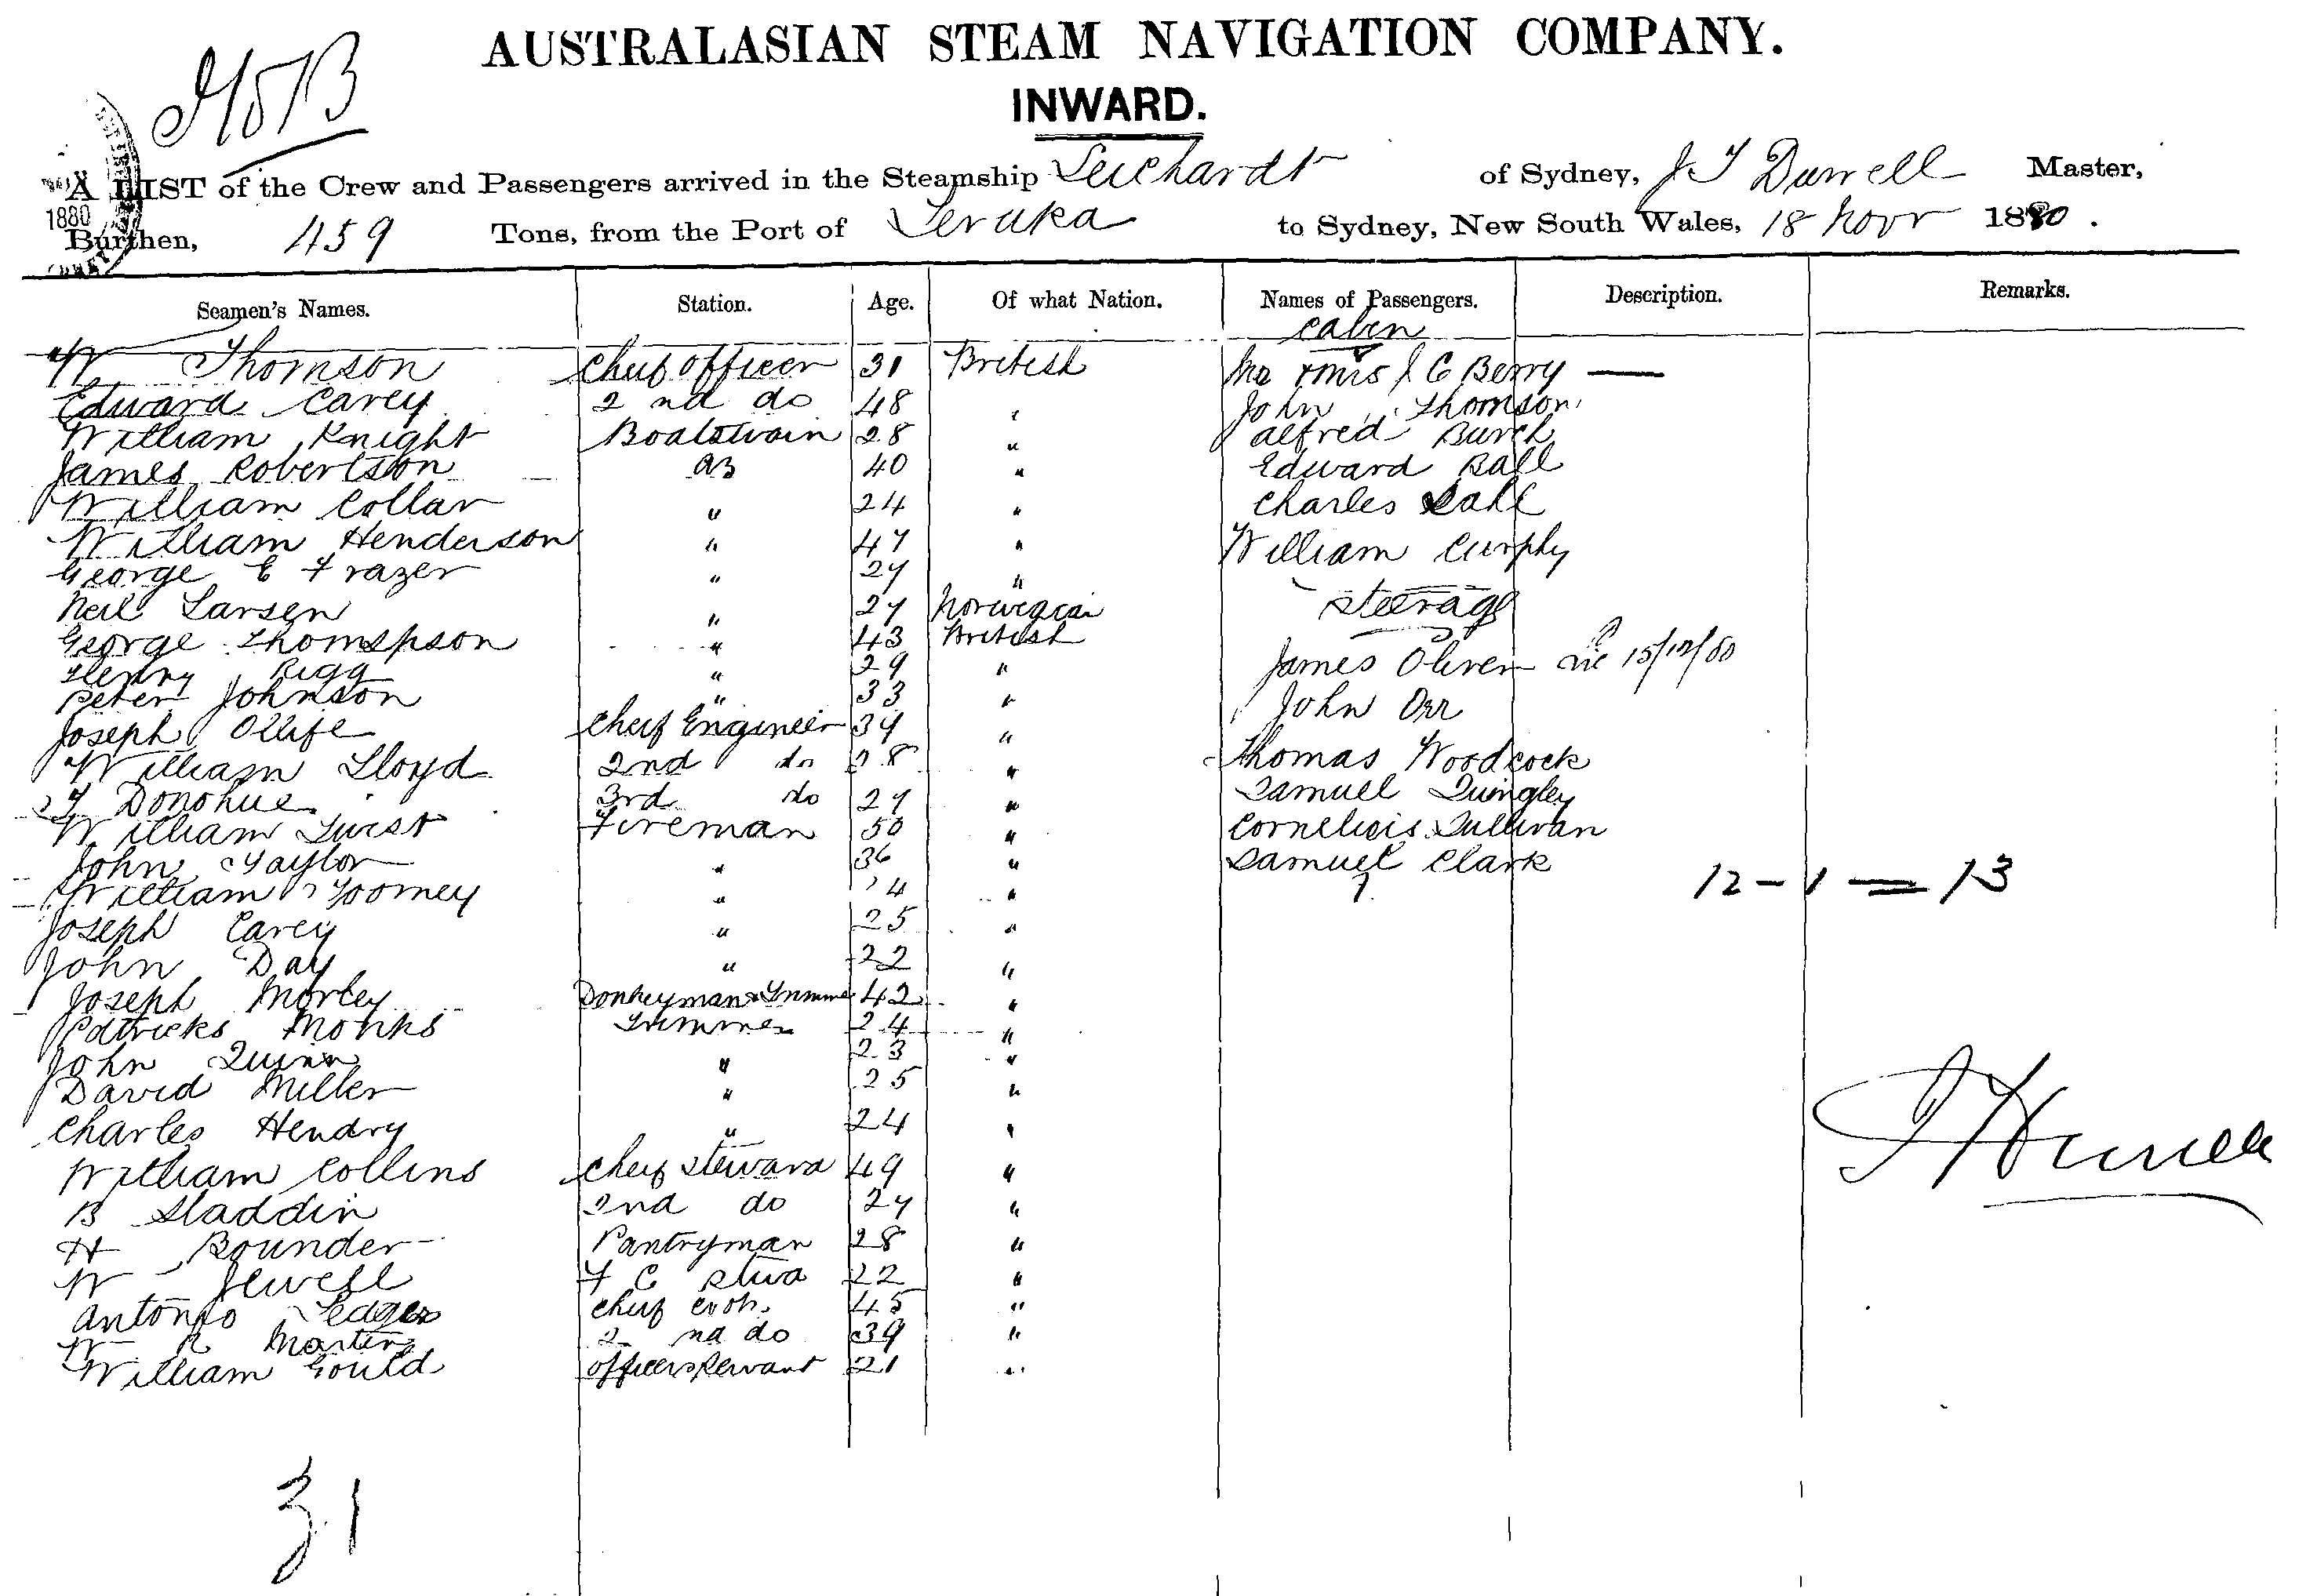 AUSTRALASIAN STEAM NAVIGATION COMPANY.
INWARD.
A LIST of the Crew and Passengers arrived in the Steamship Leichardt of Sydney, J T Durrell Master,
1880
Burthen, 459 Tons, from the Port of Levuka to Sydney, New South Wales, 18 Novr 1880.
Seamen's Names. Station. Age. Of what Nation. Names of Passengers. Description. Remarks.
Cabin
W Thomson Chief Officer 31 British Mr & Mrs J C Berry —
Edward Carey 2nd do 48 " John Thomson
William Knight Boatswain 28 " Alfred Burch
James Robertson AB 40 " Edward Ball
William Collar " 24 " Charles
William Henderson " 47 " William Curphy
George E Frazer " 27 "
Neil Larsen " 27 Norwegian Steerage
George Thompson " 43 British
Henry Rigg " 29 " James Oliver 15/12/80
Peter Johnson " 33 " John Orr
Joseph Ollife Chief Engineer 34 "
William Lloyd 2nd do 28 " Thomas Woodcock
Donohue 3rd do 27 " Samuel Quingley
William Twist Fireman 50 " Cornelius Sullivan
John Taylor " 36 " Samuel Clark
William Toomey " 24 " 12 - 1 = 13
Joseph Carey " 25 "
John Day " 22 "
Joseph Morley Donkeyman & Trimmer 42 "
Patricks Monks Trimmer 24 "
John Quinn " 23 "
David Miller " 25 "
Charles Hendry " 24 "
William Collins Chief Steward 49 "
B Sladdin 2nd do 27 "
H Bounder Pantryman 28 "
W Jewell F C Stwd 22 "
Antonio Chief Cook 45 "
W R Martin 2nd do 39 "
William Gould Officers Servant 21 "
31